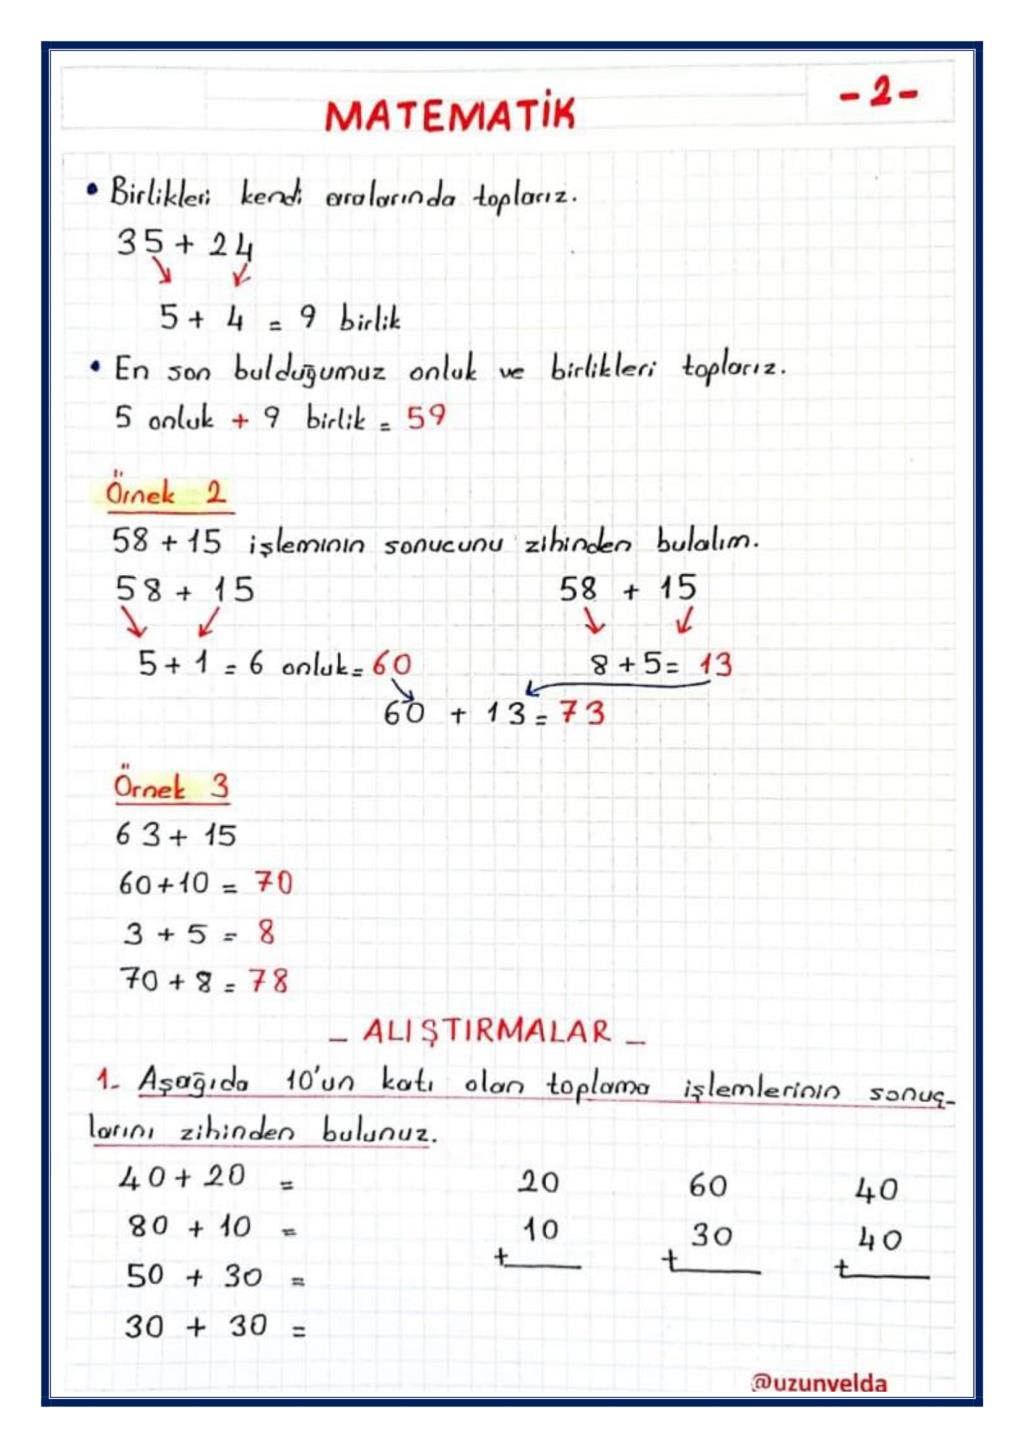 MATEMATİK
-2-
• Birlikleri kendi aralarında toplarız.
35 + 24
5 + 4 = 9 birlik
• En son bulduğumuz onluk ve birlikleri toplarız.
5 onluk + 9 birlik = 59
Örnek 2
58 + 15 işleminin sonucunu zihinden bulalım.
58 + 15 58 + 15
5 + 1 = 6 onluk = 60 8 + 5 = 13
60 + 13 = 73
Örnek 3
63 + 15
60 + 10 = 70
3 + 5 = 8
70 + 8 = 78
_ ALIŞTIRMALAR _
1- Aşağıda 10'un katı olan toplama işlemlerinin sonuç-
larını zihinden bulunuz.
40 + 20 = 20 60 40
80 + 10 = 10 30 40
+ + +
50 + 30 =
30 + 30 =
@uzunvelda